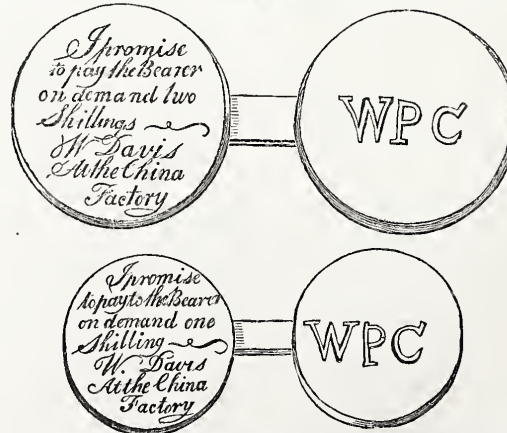 I promise
to pay the Bearer
on demand two
Shillings
W Davis
At the China
Factory
WPC
I promise
to pay to the Bearer
on demand one
Shilling
W. Davis
At the China
Factory
WPC